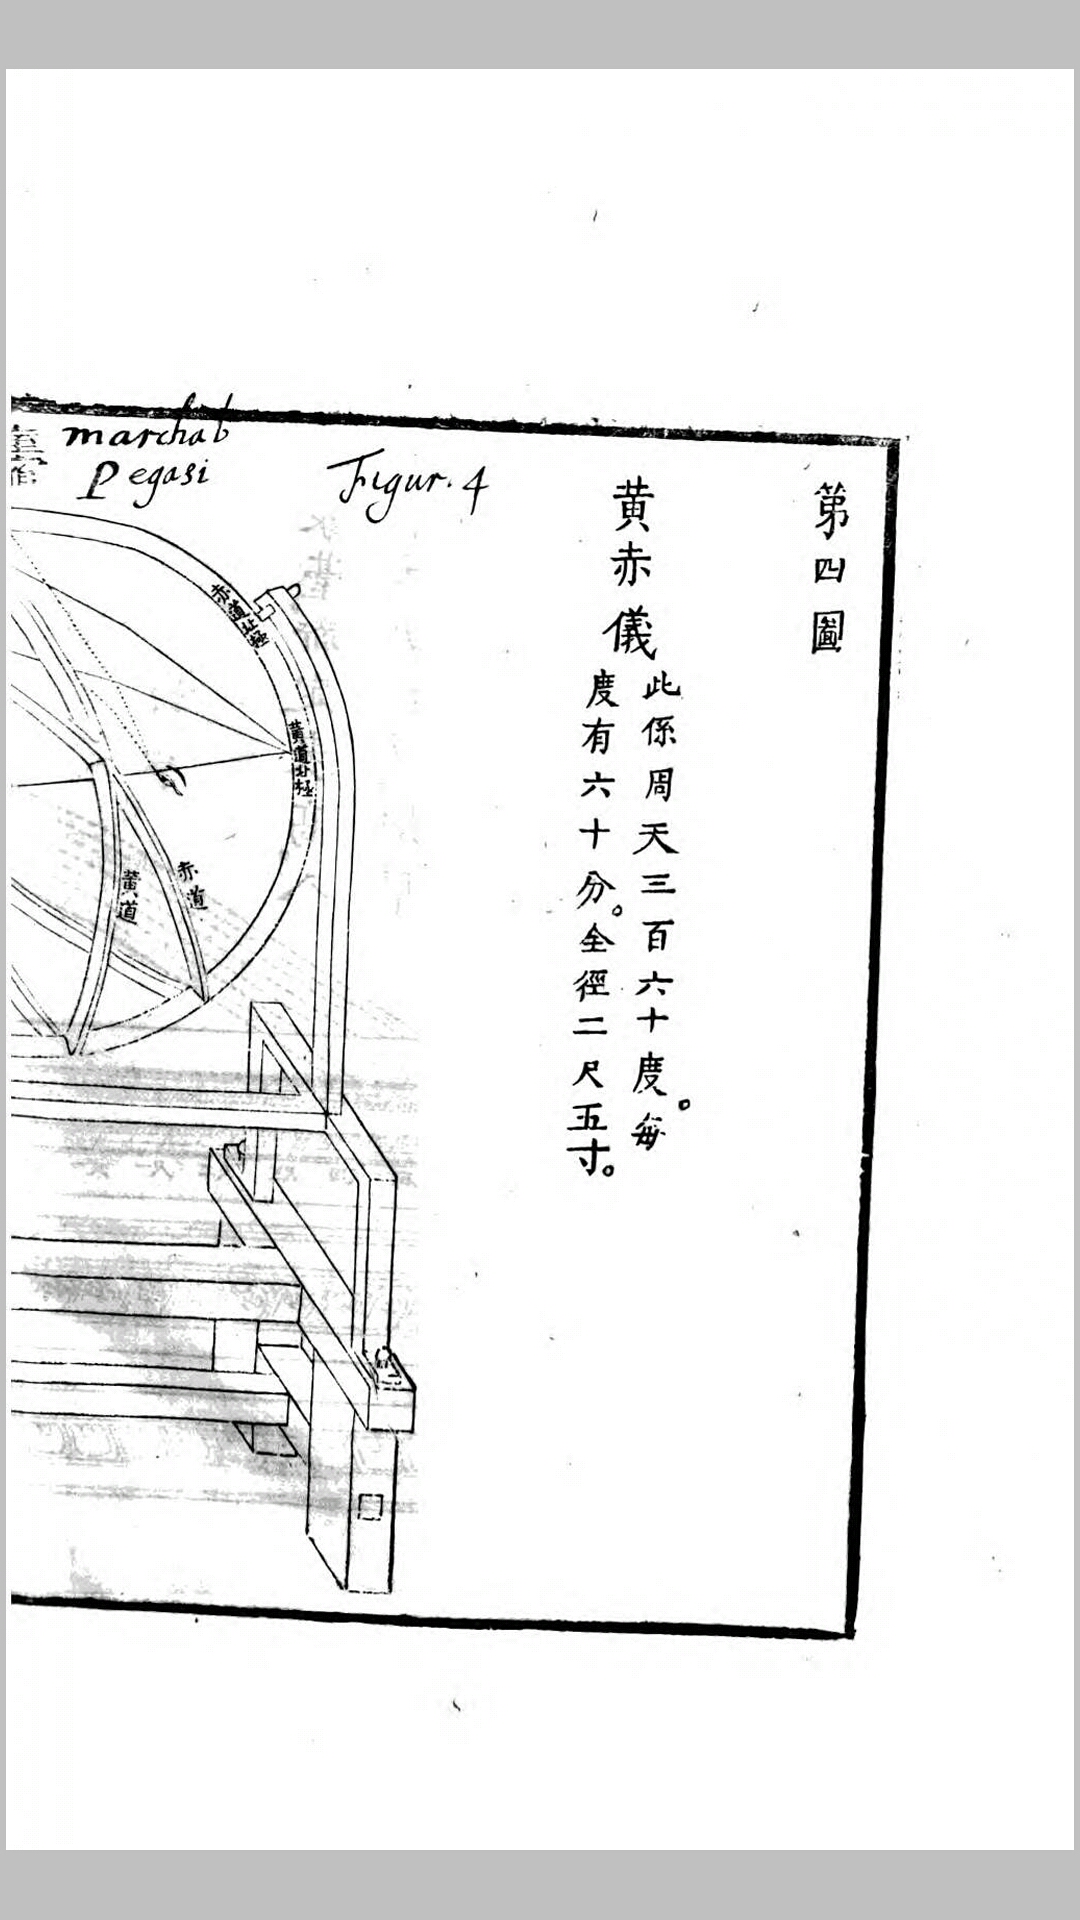 第四圖
黄赤儀
此係周天三百六十度。每
度有六十分。全徑二尺五寸。
Figur. 4
marchab
Pegasi
室宿
赤道北極
黄道北極
赤道
黄道